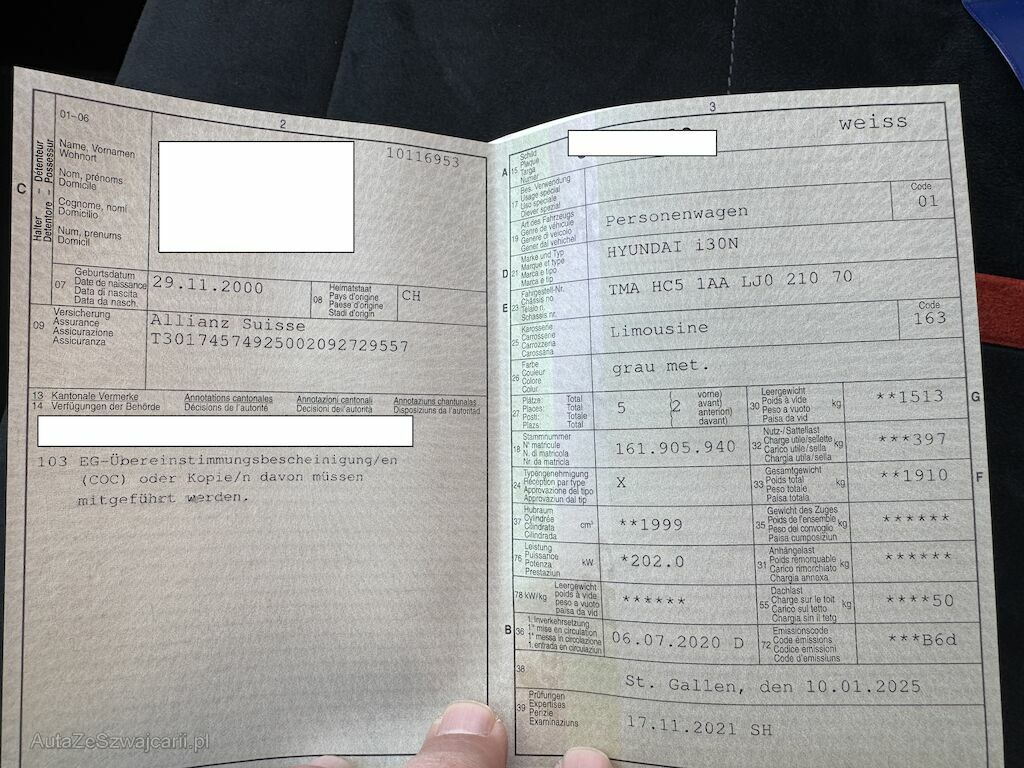 2
01-06
Name, Vornamen
Wohnort
Nom, prénoms
Domicile
Cognome, nomi
Domicilio
Num, prenums
Domicil
C
Halter – Détenteur
Detentore – Possessur
10116953
07
Geburtsdatum
Date de naissance
Data di nascita
Data da nasch.
29.11.2000
08
Heimatstaat
Pays d'origine
Paese d'origine
Stadi d'origin
CH
09
Versicherung
Assurance
Assicurazione
Assicuranza
Allianz Suisse
T30174574925002092729557
13 Kantonale Vermerke Annotations cantonales Annotazioni cantonali Annotaziuns chantunalas
14 Verfügungen der Behörde Décisions de l'autorité Decisioni dell'autorità Disposiziuns da l'autoritad
103 EG-Übereinstimmungsbescheinigung/en
(COC) oder Kopie/n davon müssen
mitgeführt werden.
3
A
15
Schild
Plaque
Targa
Numer
weiss
17
Bes. Verwendung
Usage spécial
Uso speciale
Diever spezial
19
Art des Fahrzeugs
Genre de véhicule
Genere di veicolo
Gener dal vehichel
Personenwagen
Code
01
D
21
Marke und Typ
Marque et type
Marca e tipo
Marca e tip
HYUNDAI i30N
E
23
Fahrgestell-Nr.
Châssis no
Telaio n.
Schassis nr.
TMA HC5 1AA LJ0 210 70
25
Karosserie
Carrosserie
Carrozzeria
Carossaria
Limousine
Code
163
26
Farbe
Couleur
Colore
Colur
grau met.
27
Plätze: Total
Places: Total
Posti: Totale
Plazs: Total
5
(2
vorne)
avant)
anteriori)
davant)
30
Leergewicht
Poids à vide
Peso a vuoto
Paisa da vid
kg
**1513
G
18
Stammnummer
N° matricule
N. di matricola
Nr. da matricla
161.905.940
32
Nutz-/Sattellast
Charge utile/sellette
Carico utile/sella
Chargia utila/sella
kg
***397
24
Typengenehmigung
Réception par type
Approvazione del tipo
Approvaziun dal tip
X
33
Gesamtgewicht
Poids total
Peso totale
Paisa totala
kg
**1910
F
37
Hubraum
Cylindrée
Cilindrata
Cilindrada
cm³
**1999
35
Gewicht des Zuges
Poids de l'ensemble
Peso del convoglio
Paisa cumposiziun
kg
******
76
Leistung
Puissance
Potenza
Prestaziun
kW
*202.0
31
Anhängelast
Poids remorquable
Carico rimorchiato
Chargia annexa
kg
******
78 kW/kg
Leergewicht
poids à vide
peso a vuoto
paisa da vid
******
55
Dachlast
Charge sur le toit
Carico sul tetto
Chargia sin il tetg
kg
****50
B
36
1. Inverkehrsetzung
1re mise en circulation
1a messa in circolazione
1. entrada en circulaziun
06.07.2020 D
72
Emissionscode
Code émissions
Codice emissioni
Code d'emissiuns
***B6d
38
St. Gallen, den 10.01.2025
39
Prüfungen
Expertises
Perizie
Examinaziuns
17.11.2021 SH
AutaZeSzwajcarii.pl